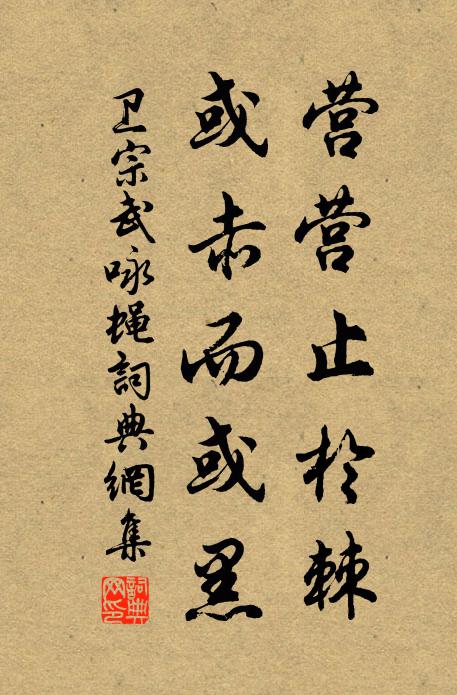 营营止於棘
或赤而或黑
卫宗武咏蝇詞典網集
詞典网印